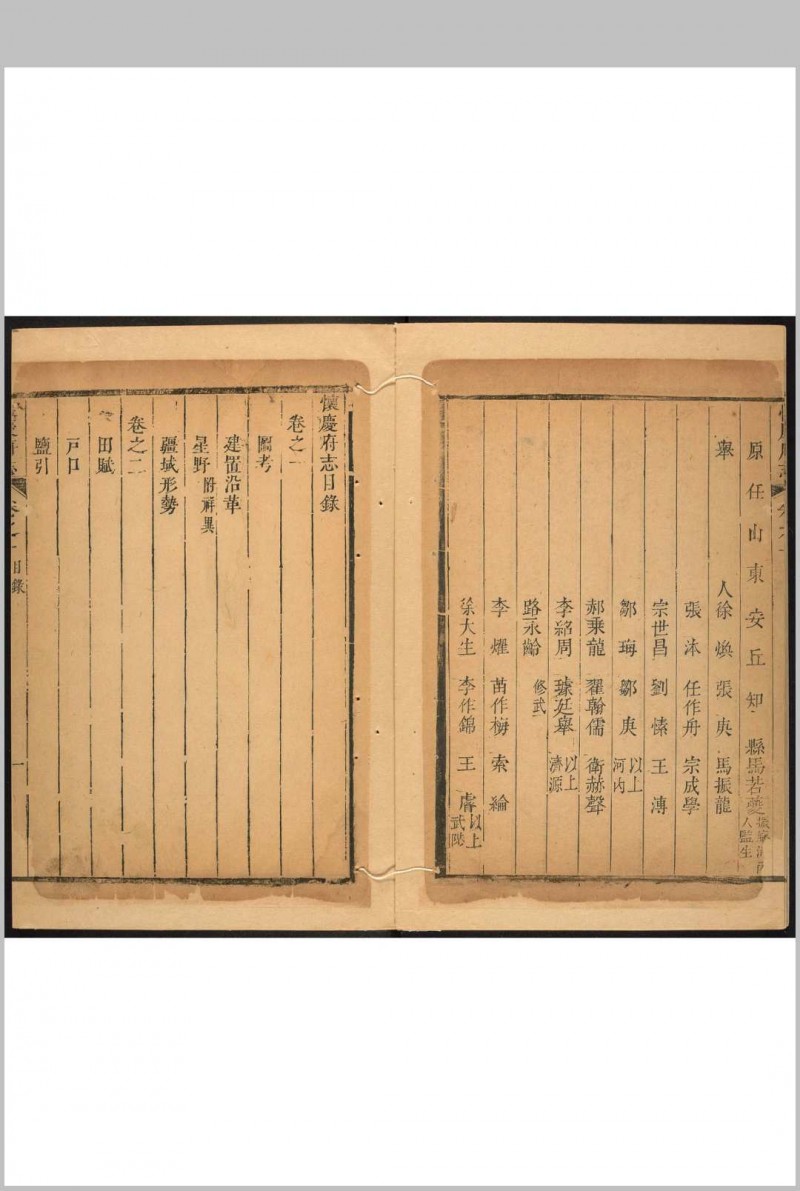 原任山東安丘知縣馬若夔 人監生
舉人徐煥 張庚 馬振龍
張沐 任作舟 宗成學
宗世昌 劉愫 王溥
鄒珻 鄒庚 以上河內
郝乗龍 翟翰儒 衛赫聲
李紹周 璩廷舉 以上濟源
路永齡 修武
李燿 苗作梅 索綸
徐大生 李作錦 王䧹 以上武陟
懷慶府志目錄
卷之一
圖考
建置沿革
星野 附祥異
疆域形勢
卷之二
田賦
戸口
鹽引
目錄 一